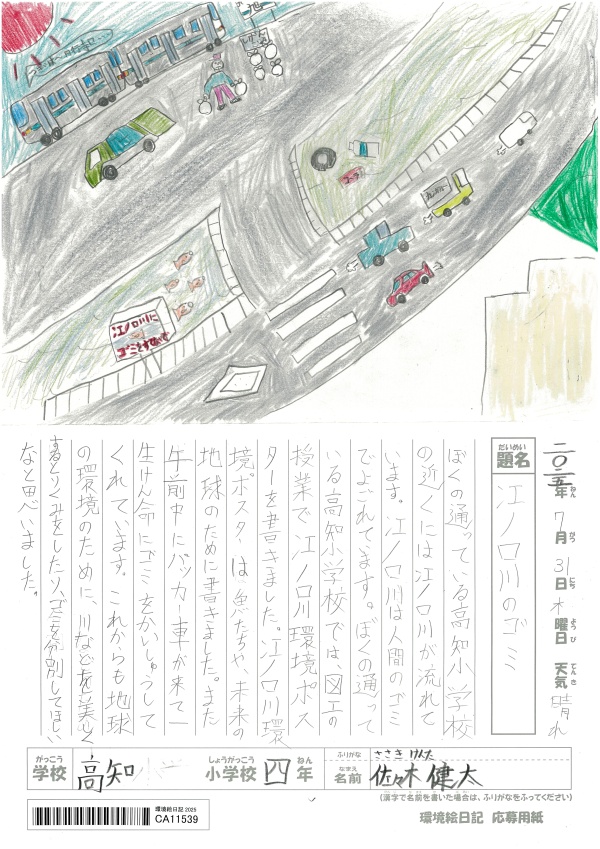 江ノ口川に
ゴミをすてないで
二〇二五年 7月 31日 木曜日 天気 晴れ
ねん がつ にち ようび てんき
だいめい
題名
江ノ口川のゴミ
ぼくの通っている高知小学校
の近くには江ノ口川が流れて
います。江ノ口川は人間のゴミ
でよごれてます。ぼくの通って
いる高知小学校では、図工の
授業で江ノ口川環境ポス
ターを書きました。江ノ口川環
境ポスターは魚たちや、未来の
地球のために書きました。また
午前中にパッカー車が来て一
生けん命にゴミをかいしゅうして
くれています。これからも地球
の環境のために、川などを美しく
するとりくみをしたり、ゴミを分別してほしい
なと思いました。
がっこう
学校
高知
しょうがっこう
小学校
四
ねん
年
ふりがな
ささき けんた
なまえ
名前
佐々木 健太
(漢字で名前を書いた場合は、ふりがなをふってください)
環境絵日記 2025
CA11539
環境絵日記 応募用紙